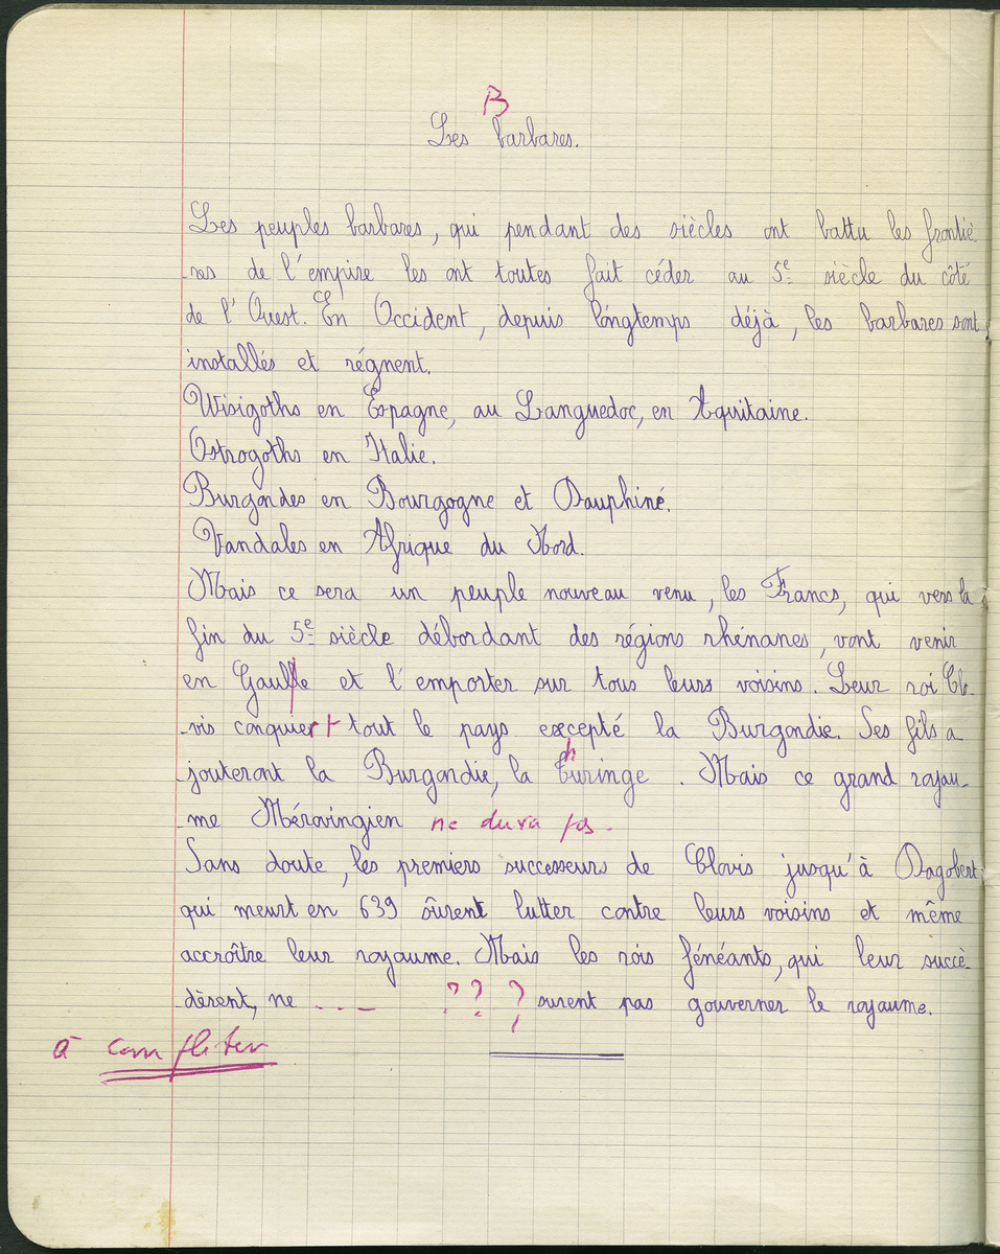 B
Les barbares.
Les peuples barbares, qui pendant des siècles ont battu les frontiè
res de l'empire les ont toutes fait céder au 5e siècle du côté
de l'Ouest. En Occident, depuis longtemps déjà, les barbares sont
installés et régnent.
Wisigoths en Espagne, au Languedoc, en Aquitaine.
Ostrogoths en Italie.
Burgondes en Bourgogne et Dauphiné.
Vandales en Afrique du Nord.
Mais ce sera un peuple nouveau venu, les Francs, qui vers la
fin du 5e siècle débordant des régions rhénanes, vont venir
en Gaulle et l'emporter sur tous leurs voisins. Leur roi Clo-
vis conquiert tout le pays excepté la Burgondie. Ses fils a
jouteront la Burgondie, la Thuringe. Mais ce grand royau-
me Mérovingien ne dura pas.
Sans doute, les premiers successeurs de Clovis jusqu'à Dagobert
qui meurt en 639 sûrent lutter contre leurs voisins et même
accroître leur royaume. Mais les rois fénéants, qui leur succè-
dèrent, ne ... ?? ? surent pas gouverner le royaume.
à complèter